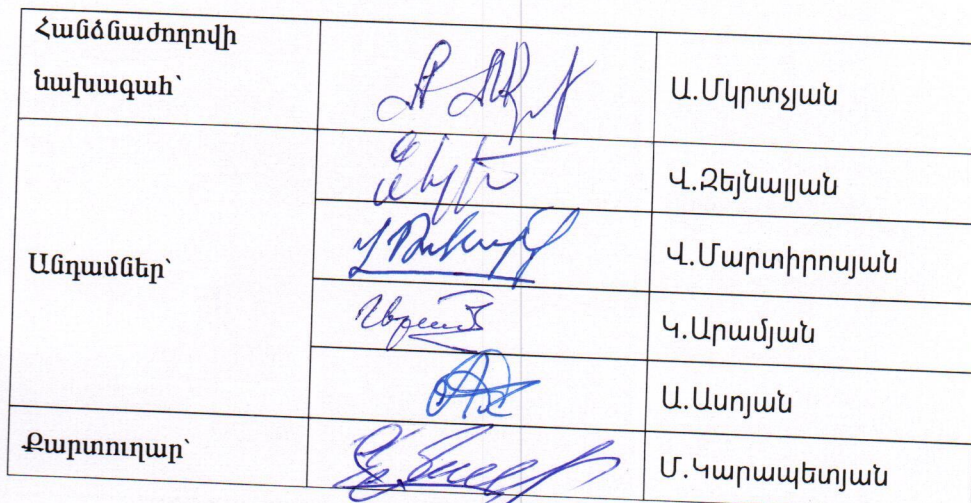 Հանձնաժողովի
նախագահ՝
Ա.Մկրտչյան
Վ.Զեյնալյան
Անդամներ՝
Վ.Մարտիրոսյան
Կ.Արամյան
Ա.Ասոյան
Քարտուղար՝
Մ.Կարապետյան